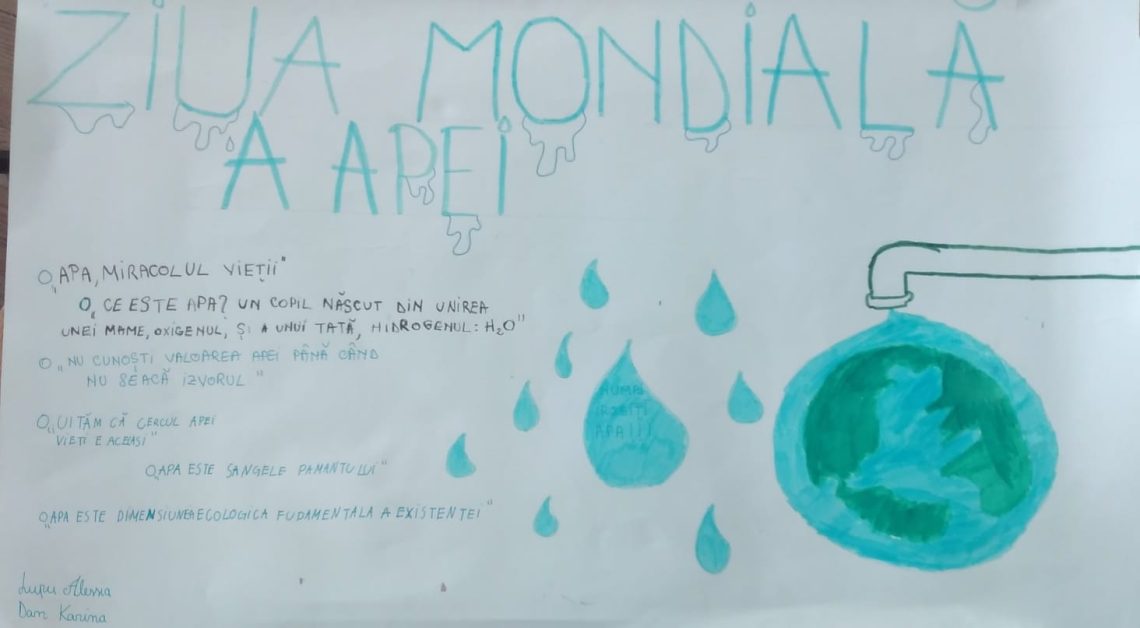 ZIUA MONDIALĂ
A APEI
„APA, MIRACOLUL VIEȚII"
„CE ESTE APA? UN COPIL NĂSCUT DIN UNIREA
UNEI MAME, OXIGENUL, ȘI A UNUI TATĂ, HIDROGENUL: H₂O"
„NU CUNOȘTI VALOAREA APEI PÂNĂ CÂND
NU SEACĂ IZVORUL"
„UITĂM CĂ CERCUL APEI
VIETI E ACEEASI"
„APA ESTE SANGELE PAMANTULUI"
„APA ESTE DIMENSIUNEA ECOLOGICA FUDAMENTALA A EXISTENȚEI"
APA!!!
Lupu Alessia
Dan Karina